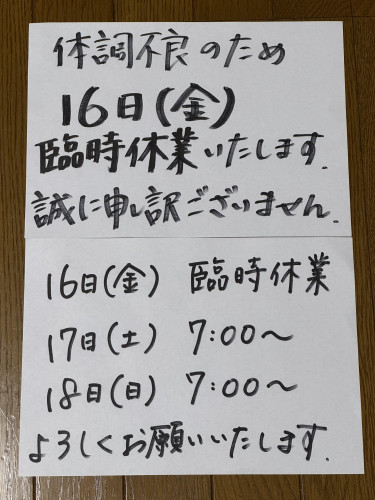 体調不良のため
16日(金)
臨時休業いたします.
誠に申し訳ございません.
16日(金) 臨時休業
17日(土) 7:00〜
18日(日) 7:00〜
よろしくお願いいたします.